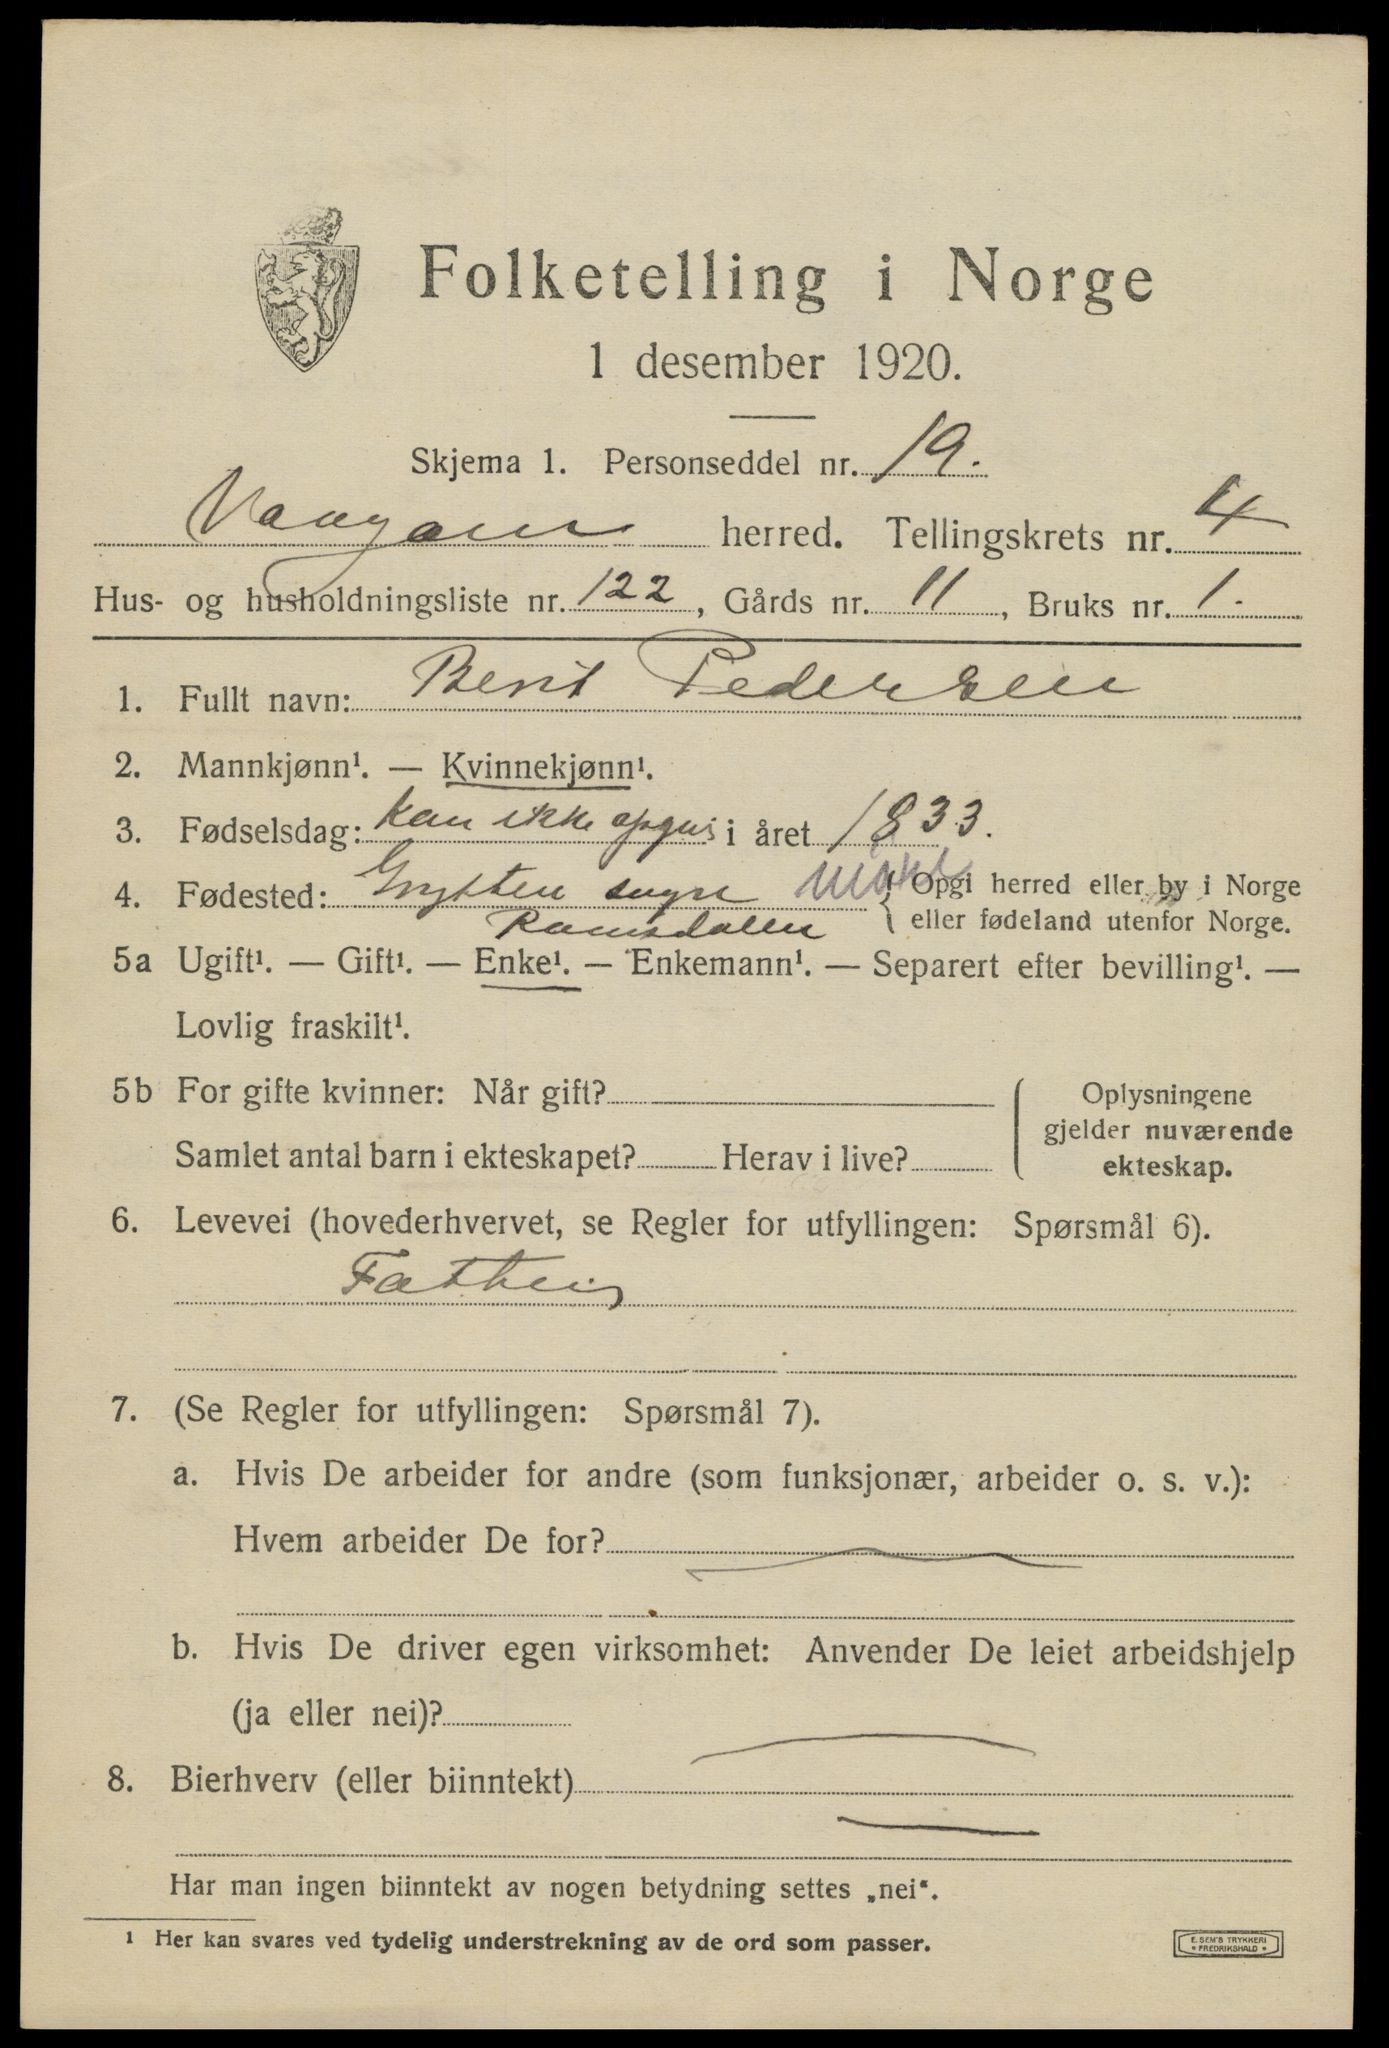 Folketelling i Norge
1 desember 1920.
Skjema 1. Personseddel nr. 19.
Vaagan herred. Tellingskrets nr. 4
Hus- og husholdningsliste nr. 122, Gårds nr. 11, Bruks nr. 1.
1. Fullt navn: Berit Pedersen
2. Mannkjønn¹. — Kvinnekjønn¹.
3. Fødselsdag: kan ikke opgis i året 1833.
4. Fødested: Grytten sogn { Opgi herred eller by i Norge
Romsdalen eller fødeland utenfor Norge.
5a Ugift¹. — Gift¹. — Enke¹. — Enkemann¹. — Separert efter bevilling¹. —
Lovlig fraskilt¹.
5b For gifte kvinner: Når gift?
Samlet antal barn i ekteskapet? Herav i live?
Oplysningene
gjelder nuværende
ekteskap.
6. Levevei (hovederhvervet, se Regler for utfyllingen: Spørsmål 6).
Fattig
7. (Se Regler for utfyllingen: Spørsmål 7).
a. Hvis De arbeider for andre (som funksjonær, arbeider o. s. v.):
Hvem arbeider De for?
b. Hvis De driver egen virksomhet: Anvender De leiet arbeidshjelp
(ja eller nei)?
8. Bierhverv (eller biinntekt)
Har man ingen biinntekt av nogen betydning settes „nei“.
¹ Her kan svares ved tydelig understrekning av de ord som passer.
E. SEM'S TRYKKERI
FREDRIKSHALD